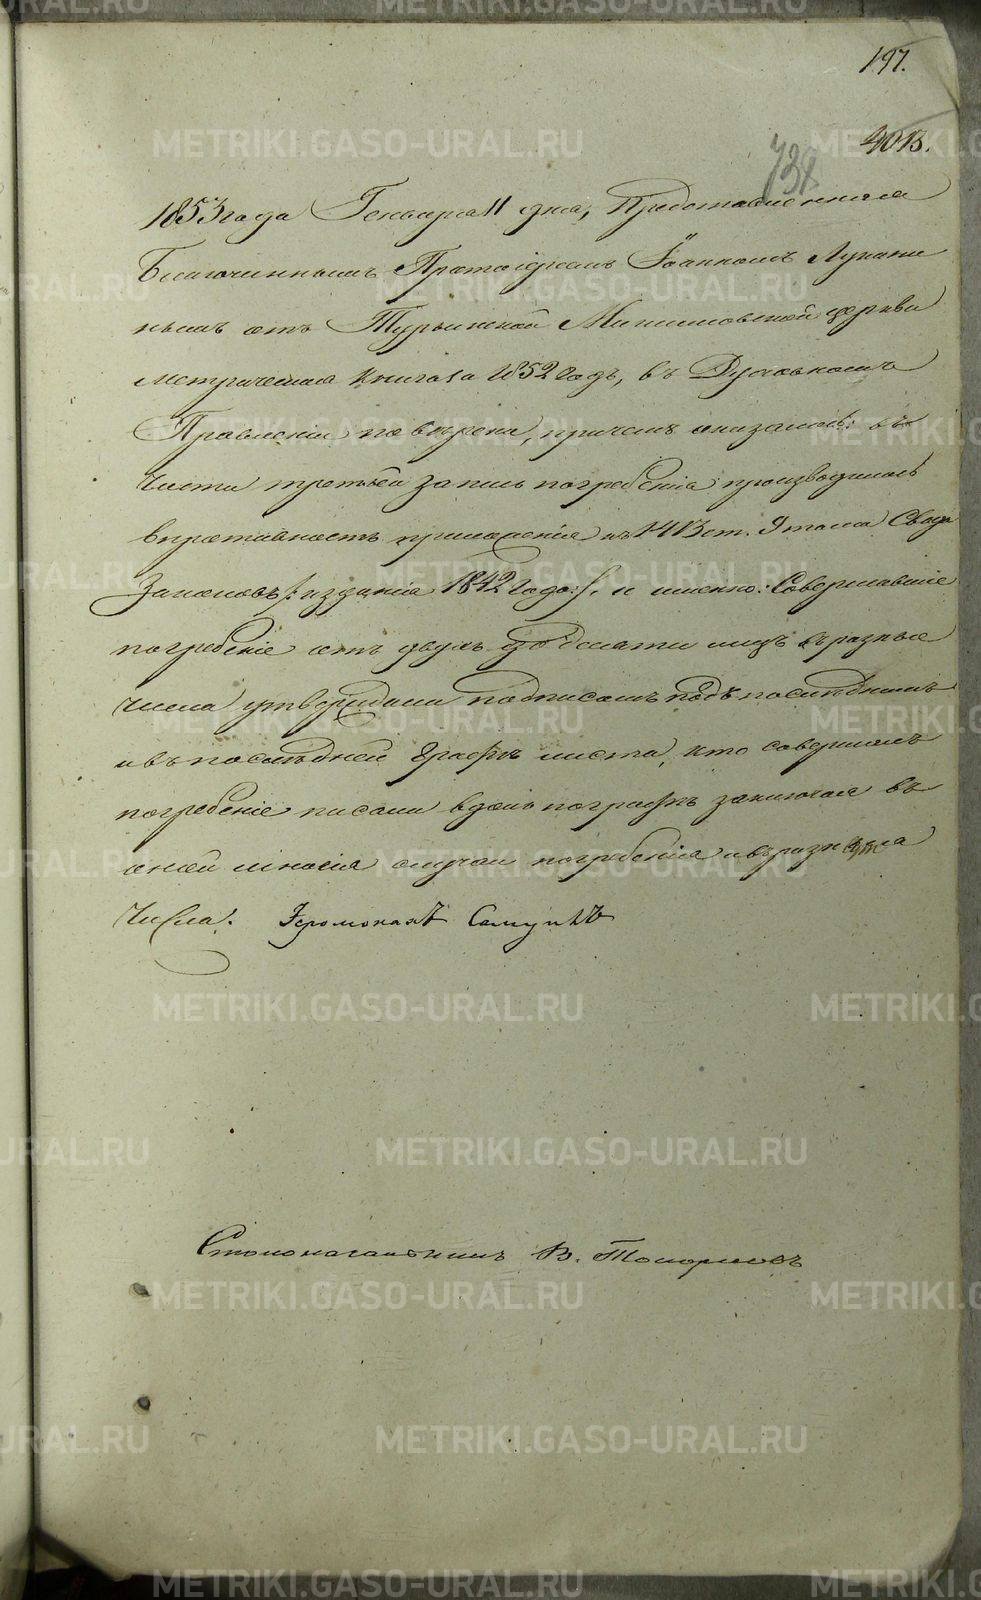 197.
4013.
738
1853 года Генваря 11 дня, Представленная
Благочиннымъ Протоіереемъ Іоанномъ Лукани
нымъ отъ Турьинской Максимовской церкви
метрическая книга за 1852 годъ, въ Духовномъ
Правленіи повѣрена, причемъ оказалось: въ
части третьей запись погребенія производилась
впротивность приложенія къ 1413 ст. 9 тома Свода
Законовъ /: изданія 1842 года :/, и именно: Совершавшіе
погребеніе отъ двухъ до десяти лицъ въ разные
числа утверждали подписомъ подъ послѣднимъ
и въ послѣдней графѣ листа, кто совершалъ
погребеніе писали вдоль по графѣ заключая въ
оной многія случаи погребенія и въ разныя
числа. Іеромонахъ Самуилъ
Столоначальникъ В. Топорковъ
METRIKI.GASO-URAL.RU